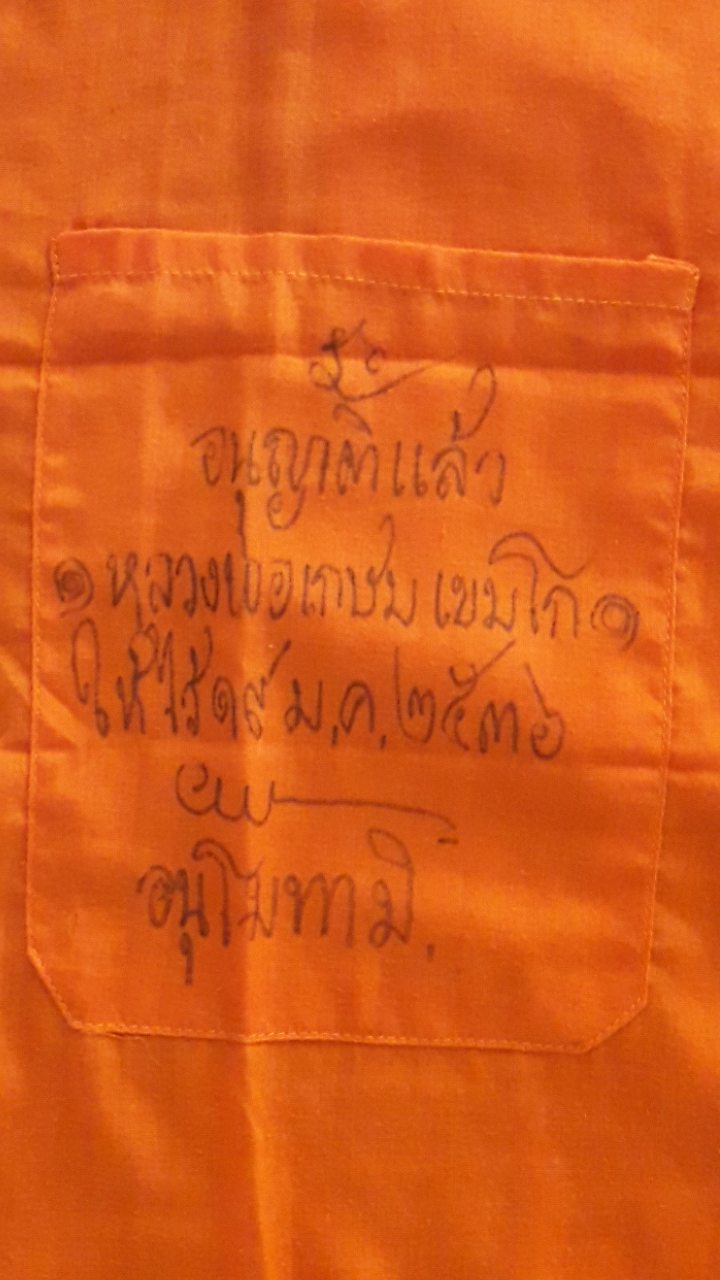 อนุญาติแล้ว
๑ หลวงพ่อเกษม เขมโก ๑
ให้ไว้ ๑๙ ม.ค. ๒๕๓๖
อนุโมทามิ.